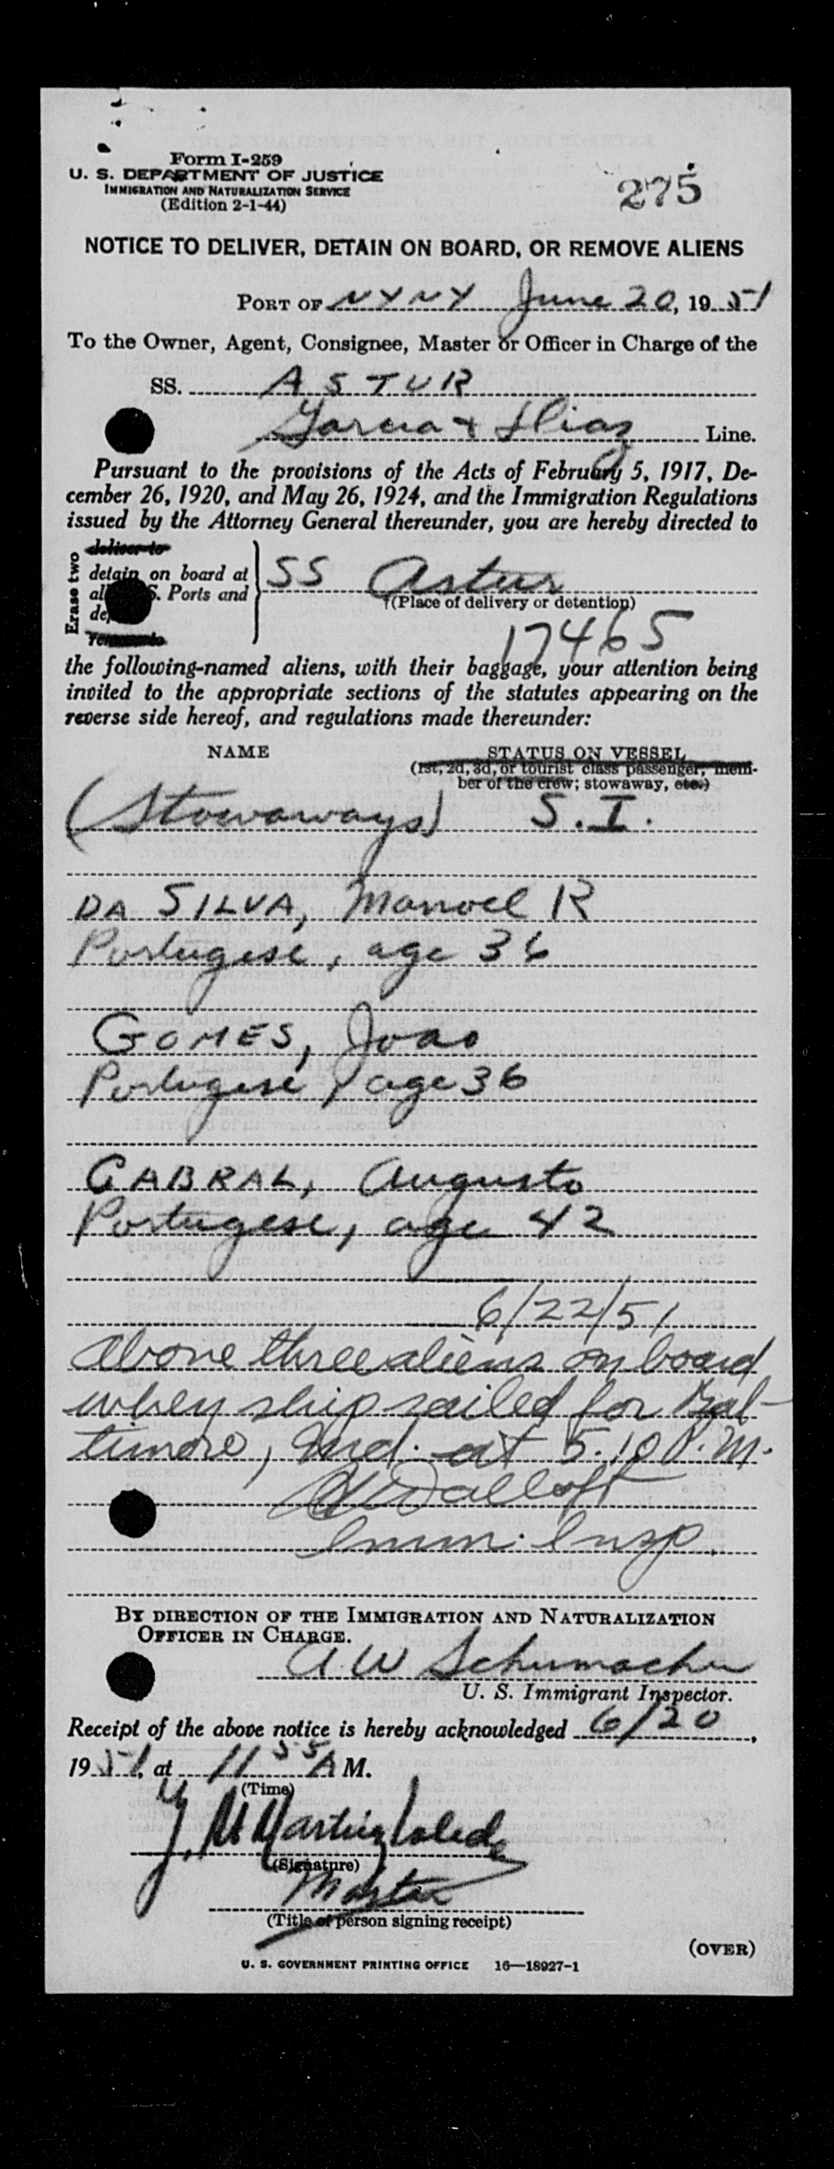 Form I-259
U. S. DEPARTMENT OF JUSTICE
IMMIGRATION AND NATURALIZATION SERVICE
(Edition 2-1-44)
275
NOTICE TO DELIVER, DETAIN ON BOARD, OR REMOVE ALIENS
PORT OF NYNY June 20, 1951
To the Owner, Agent, Consignee, Master or Officer in Charge of the
SS. ASTUR
Garcia & Diaz Line.
Pursuant to the provisions of the Acts of February 5, 1917, De-
cember 26, 1920, and May 26, 1924, and the Immigration Regulations
issued by the Attorney General thereunder, you are hereby directed to
Erase two
deliver to
detain on board at
S. Ports and
SS Astur
(Place of delivery or detention)
17465
the following-named aliens, with their baggage, your attention being
invited to the appropriate sections of the statutes appearing on the
reverse side hereof, and regulations made thereunder:
NAME STATUS ON VESSEL
(1st, 2d, 3d, or tourist class passenger; mem-
ber of the crew; stowaway, etc.)
(Stowaways) S.I.
DA SILVA, Manoel R
Portugese, age 36
GOMES, Joao
Portugese, age 36
CABRAL, Augusto
Portugese, age 42
6/22/51
Above three aliens on board
when ship sailed for Bal-
timore, Md. at 5.10 P.M.
Imm. Insp.
BY DIRECTION OF THE IMMIGRATION AND NATURALIZATION
OFFICER IN CHARGE.
A W Schumacher
U. S. Immigrant Inspector.
Receipt of the above notice is hereby acknowledged 6/20,
1951, at 11 55 A M.
(Time)
(Signature)
Master
(Title of person signing receipt)
(OVER)
U. S. GOVERNMENT PRINTING OFFICE 16—18927-1